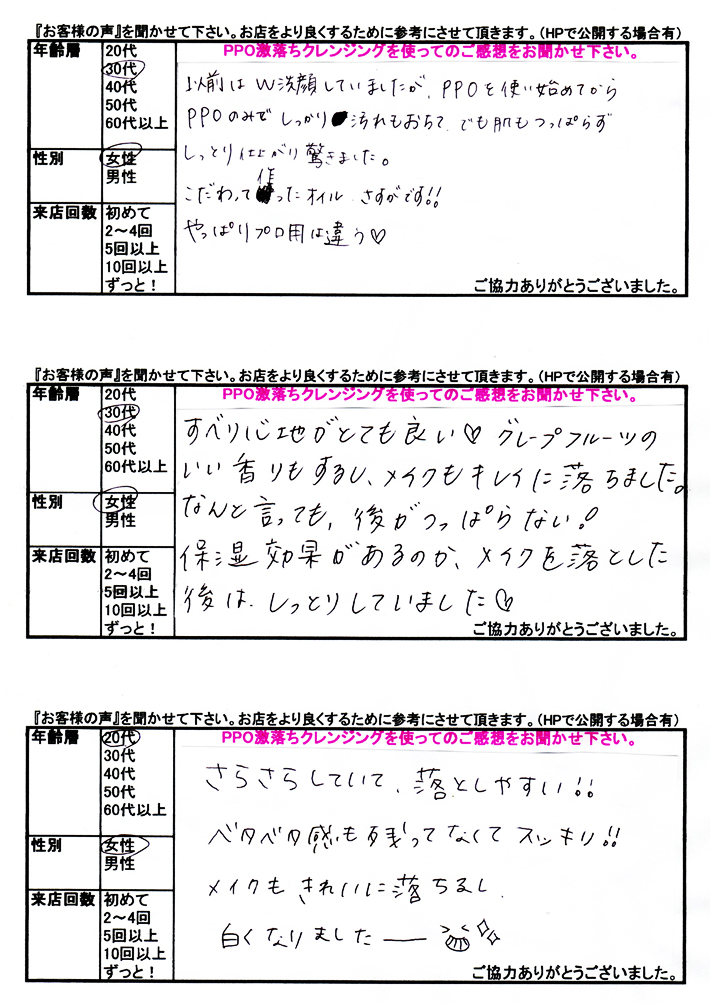 『お客様の声』を聞かせて下さい。お店をより良くするために参考にさせて頂きます。（HPで公開する場合有）
年齢層
20代
30代
40代
50代
60代以上
性別
女性
男性
来店回数
初めて
2～4回
5回以上
10回以上
ずっと！
PPO激落ちクレンジングを使ってのご感想をお聞かせ下さい。
以前はW洗顔していましたが、PPOを使い始めてから
PPOのみでしっかり汚れもおちて、でも肌もつっぱらず
しっとり仕上がり驚きました。
こだわって作ったオイル さすがです!!
やっぱりプロ用は違う♡
ご協力ありがとうございました。
『お客様の声』を聞かせて下さい。お店をより良くするために参考にさせて頂きます。（HPで公開する場合有）
年齢層
20代
30代
40代
50代
60代以上
性別
女性
男性
来店回数
初めて
2～4回
5回以上
10回以上
ずっと！
PPO激落ちクレンジングを使ってのご感想をお聞かせ下さい。
すべり心地がとても良い♡ グレープフルーツの
いい香りもするし、メイクもキレイに落ちました。
なんと言っても、後がつっぱらない！
保湿効果があるのか、メイクを落とした
後は、しっとりしていました♡
ご協力ありがとうございました。
『お客様の声』を聞かせて下さい。お店をより良くするために参考にさせて頂きます。（HPで公開する場合有）
年齢層
20代
30代
40代
50代
60代以上
性別
女性
男性
来店回数
初めて
2～4回
5回以上
10回以上
ずっと！
PPO激落ちクレンジングを使ってのご感想をお聞かせ下さい。
さらさらしていて、落としやすい!!
ベタベタ感も残ってなくてスッキリ!!
メイクもきれいに落ちるし、
白くなりましたー
ご協力ありがとうございました。